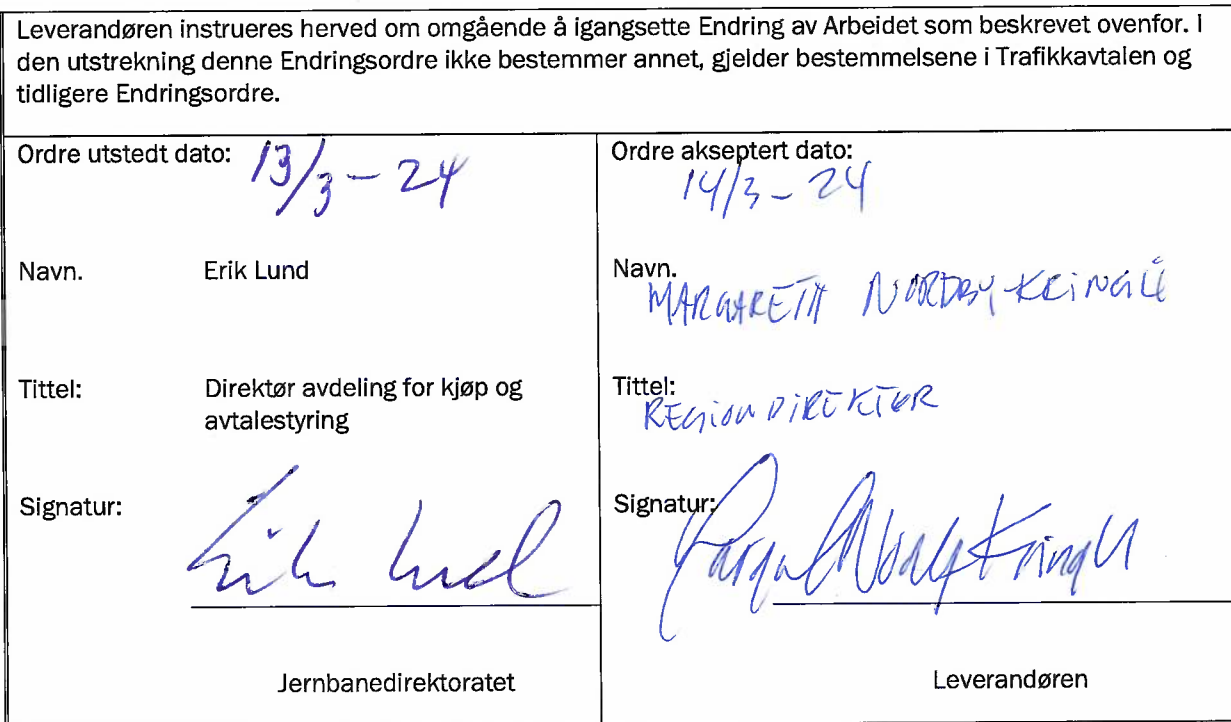 Leverandøren instrueres herved om omgående å igangsette Endring av Arbeidet som beskrevet ovenfor. I
den utstrekning denne Endringsordre ikke bestemmer annet, gjelder bestemmelsene i Trafikkavtalen og
tidligere Endringsordre.
Ordre utstedt dato: 13/3 - 24
Navn. Erik Lund
Tittel: Direktør avdeling for kjøp og
avtalestyring
Signatur: Erik Lund
Jernbanedirektoratet
Ordre akseptert dato:
14/3 - 24
Navn.
MARGARETH NORDBY KRINGLE
Tittel:
REGIONDIREKTØR
Signatur:
Leverandøren